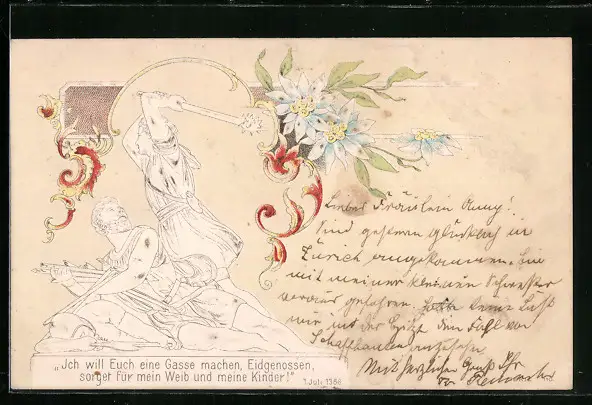 Liebes Fräulein Anny!
Sind gestern glücklich in
Zürich angekommen. Bin
mit meiner kleinen Schwester
voraus gefahren. keine Lust
mir in der Hitze den Fall von
Schaffhausen anzusehen
Mit herzlichem Gruß Ihr
„Ich will Euch eine Gasse machen, Eidgenossen,
sorget für mein Weib und meine Kinder!"